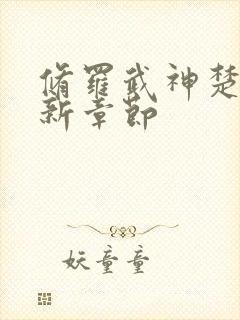 脩羅武神楚
新章節
妖童童